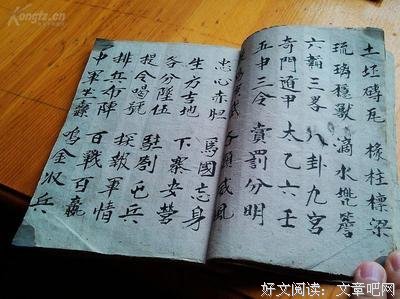 土坯磚瓦 椽柱標梁
琉璃穩獸 滴水攙簷
六韜三畧 八卦九宮
奇門遁甲 太乙六壬
五申三令 賞罰分明
武 各顯威風
忠心赤胆 爲國忘身
生方吉地 下寨安營
各分隊伍 駐劄屯兵
提令喝號 探報軍情
排兵布陣 百戰百贏
中軍坐纛 鳴金收兵
好文阅读：文章吧网